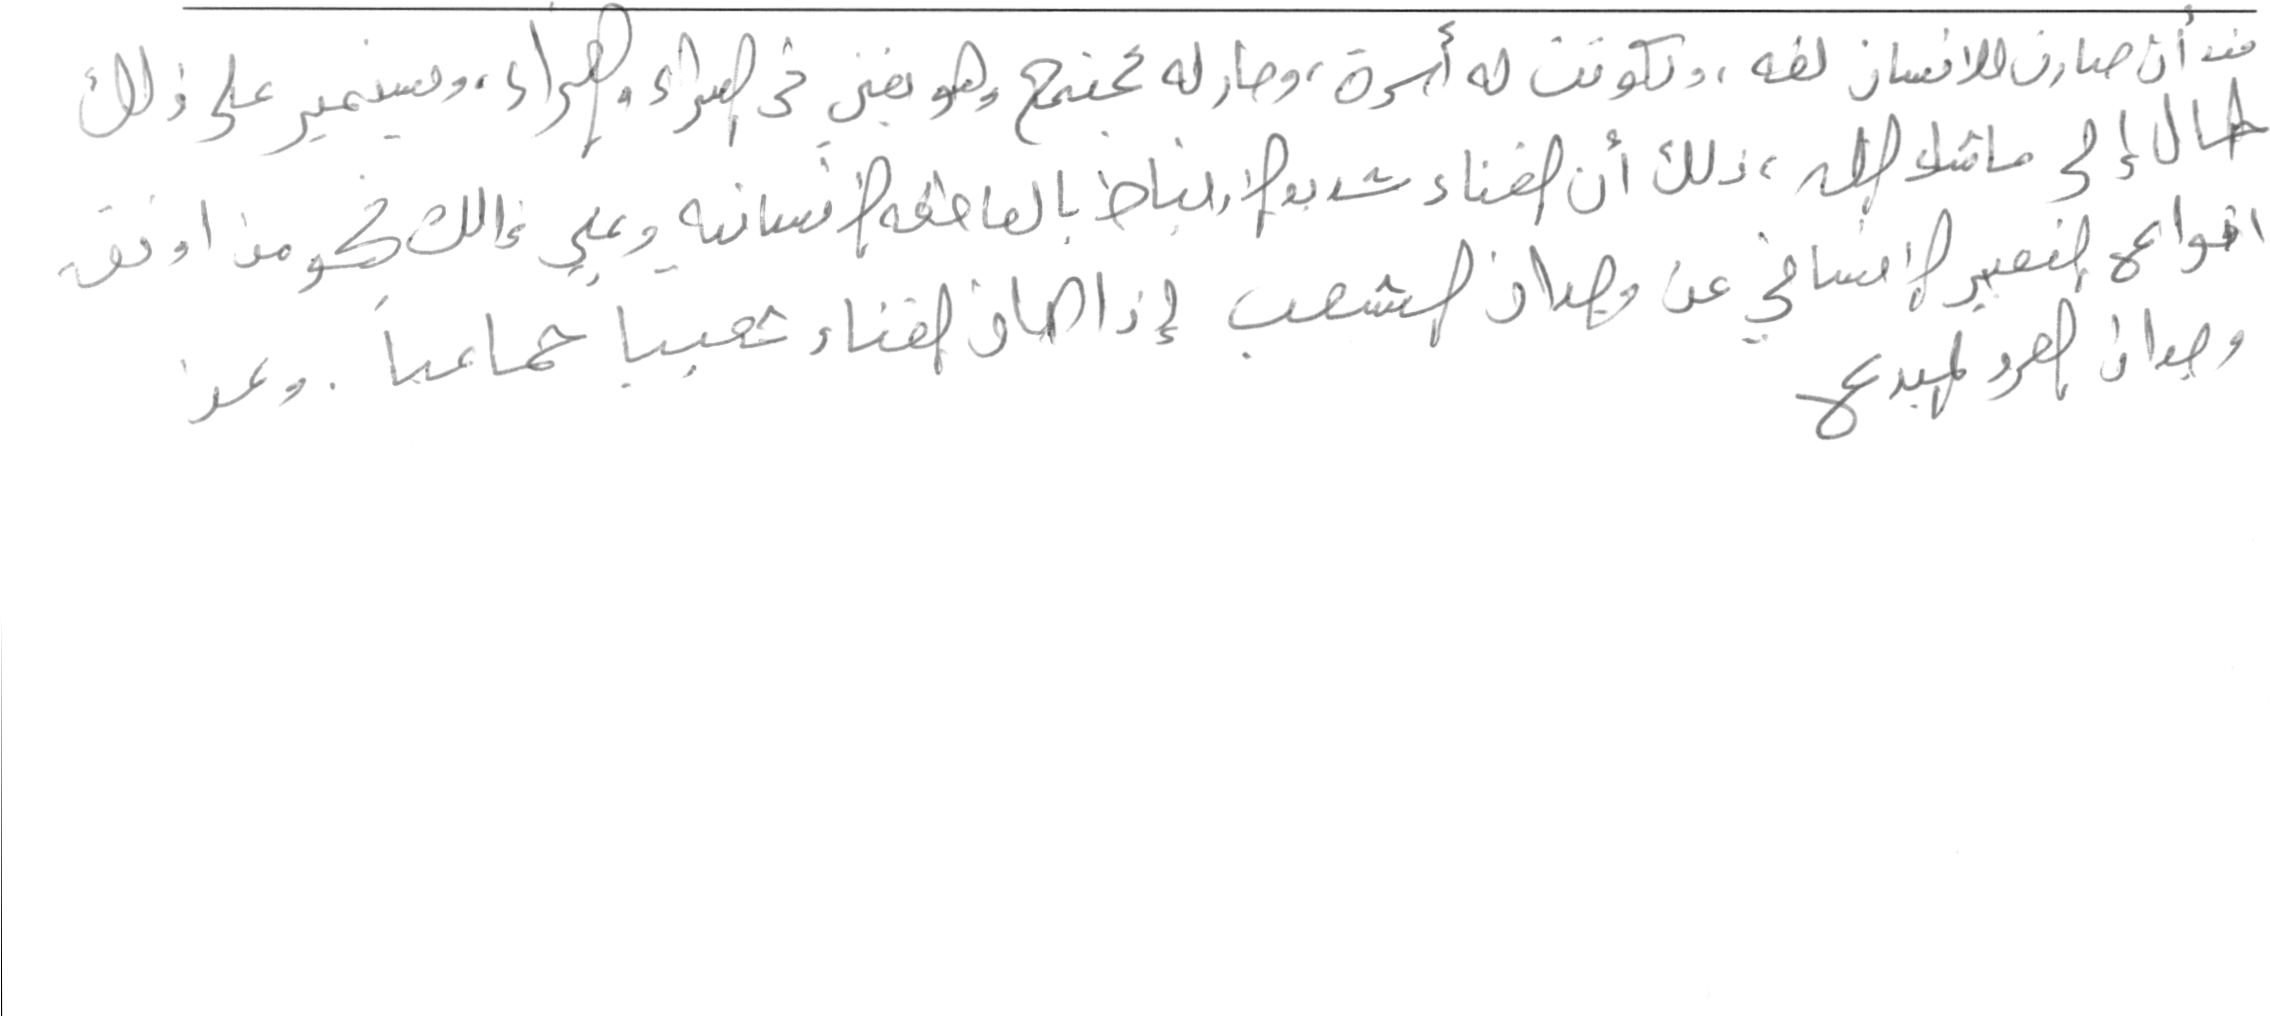 منذ أن صارت للانسان لغه ، وتكونت له أسرة ، وصار له مجتمع وهو يغني في السراء والضراء ، وسيستمير على ذلك
الحال إلى ماشاء الله ، ذلك أن الغناء شديد الارتباط بالعاطفه الإنسانيه وعلي ذالك فهو من اوثق
انواع التعبير الانساني عن وجدان الشعب إذا كان الغناء شعبيا جماعياً . وعن
وجدان الفرد المبدع